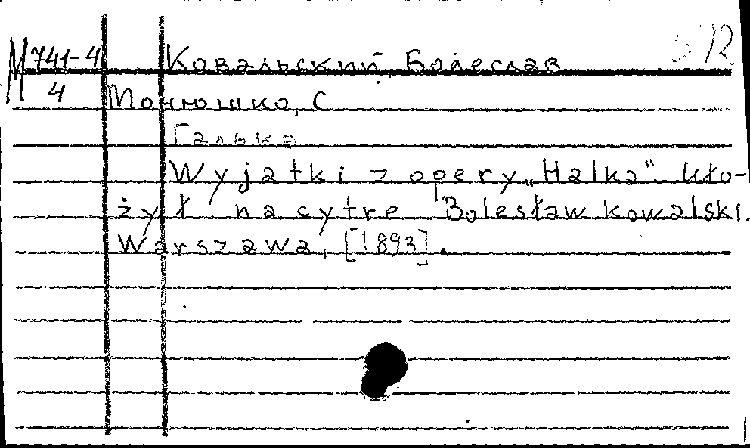 М 741-4 Ковальский, Болеслав
4 Монюшко, С
Галька
Wyjątki z opery „Halka" uło-
żył na cytre Bolesław Kowalski.
Warszawa, [1893].